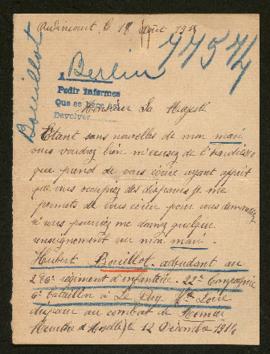 Audincourt, le 19 août 1915
77574
Bouillot
Berlin
Pedir informes
Que se
Devolver
Monsieur Sa Majesté
Étant sans nouvelles de mon mari,
vous voudrez bien m'excusez de l'hardiesse
que prend de vous écrire ayant appris
que vous occupiez des disparus je me
permets de vous écrire pour vous demander
si vous pourriez me donner quelque
renseignement sur mon mari
Hubert Bouillot adjudant au
286e régiment d'infanterie 22e Compagnie
6e bataillon à Le Puy Hte Loire
disparu au combat de
Meurthe et Moselle, le 12 Décembre 1914